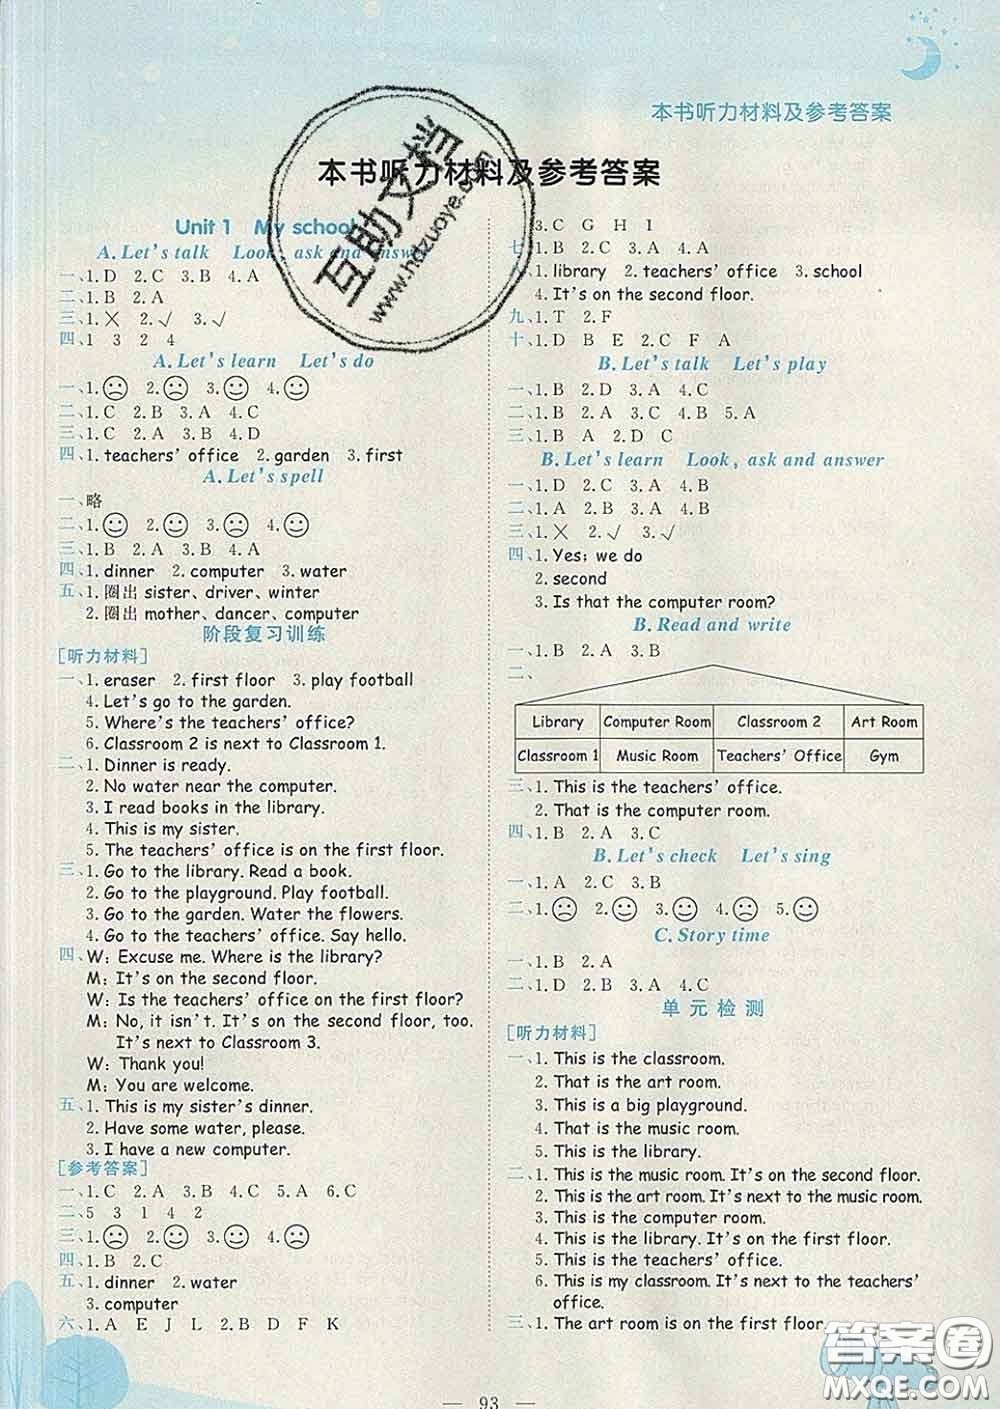 本书听力材料及参考答案
本书听力材料及参考答案
Unit 1 My school
A. Let's talk Look, ask and answer
一、1. D 2. C 3. B 4. A
二、1. B 2. A
三、1. ✗ 2. √ 3. √
四、1 3 2 4
A. Let's learn Let's do
一、1. ☹ 2. ☹ 3. ☺ 4. ☺
二、1. C 2. B 3. A 4. C
三、1. C 2. A 3. B 4. D
四、1. teachers' office 2. garden 3. first
A. Let's spell
一、略
二、1. ☺ 2. ☺ 3. ☹ 4. ☺
三、1. B 2. A 3. B 4. A
四、1. dinner 2. computer 3. water
五、1. 圈出 sister、driver、winter
2. 圈出 mother、dancer、computer
阶段复习训练
[听力材料]
一、1. eraser 2. first floor 3. play football
4. Let's go to the garden.
5. Where's the teachers' office?
6. Classroom 2 is next to Classroom 1.
二、1. Dinner is ready.
2. No water near the computer.
3. I read books in the library.
4. This is my sister.
5. The teachers' office is on the first floor.
三、1. Go to the library. Read a book.
2. Go to the playground. Play football.
3. Go to the garden. Water the flowers.
4. Go to the teachers' office. Say hello.
四、W: Excuse me. Where is the library?
M: It's on the second floor.
W: Is the teachers' office on the first floor?
M: No, it isn't. It's on the second floor, too.
It's next to Classroom 3.
W: Thank you!
M: You are welcome.
五、1. This is my sister's dinner.
2. Have some water, please.
3. I have a new computer.
[参考答案]
一、1. C 2. A 3. B 4. C 5. A 6. C
二、5 3 1 4 2
三、1. ☹ 2. ☺ 3. ☺ 4. ☹
四、1. B 2. C
五、1. dinner 2. water
3. computer
六、1. A E J L 2. B D F K
3. C G H I
七、1. B 2. B 3. A 4. A
八、1. library 2. teachers' office 3. school
4. It's on the second floor.
九、1. T 2. F
十、1. D B E 2. C F A
B. Let's talk Let's play
一、1. B 2. D 3. A 4. C
二、1. B 2. A 3. C 4. B 5. A
三、1. B A 2. D C
B. Let's learn Look, ask and answer
一、1. D 2. C 3. A 4. B
二、1. A 2. C 3. A 4. B
三、1. ✗ 2. √ 3. √
四、1. Yes; we do
2. second
3. Is that the computer room?
B. Read and write
一、1. B 2. A 3. B
二、
Library Computer Room Classroom 2 Art Room
Classroom 1 Music Room Teachers' Office Gym
三、1. This is the teachers' office.
2. That is the computer room.
四、1. B 2. A 3. C
B. Let's check Let's sing
一、1. A 2. C 3. B
二、1. ☹ 2. ☺ 3. ☺ 4. ☹ 5. ☺
C. Story time
一、1. B 2. A
二、1. B 2. C 3. A 4. C
单元检测
[听力材料]
一、1. This is the classroom.
2. That is the art room.
3. This is a big playground.
4. That is the music room.
5. This is the library.
二、1. This is the music room. It's on the second floor.
2. This is the art room. It's next to the music room.
3. This is the computer room.
4. This is the library. It's on the first floor.
5. This is the teachers' office.
6. This is my classroom. It's next to the teachers'
office.
三、1. The art room is on the first floor.
— 93 —
互助文档
www.hdzuoye.com
答案圈
MXQE.COM